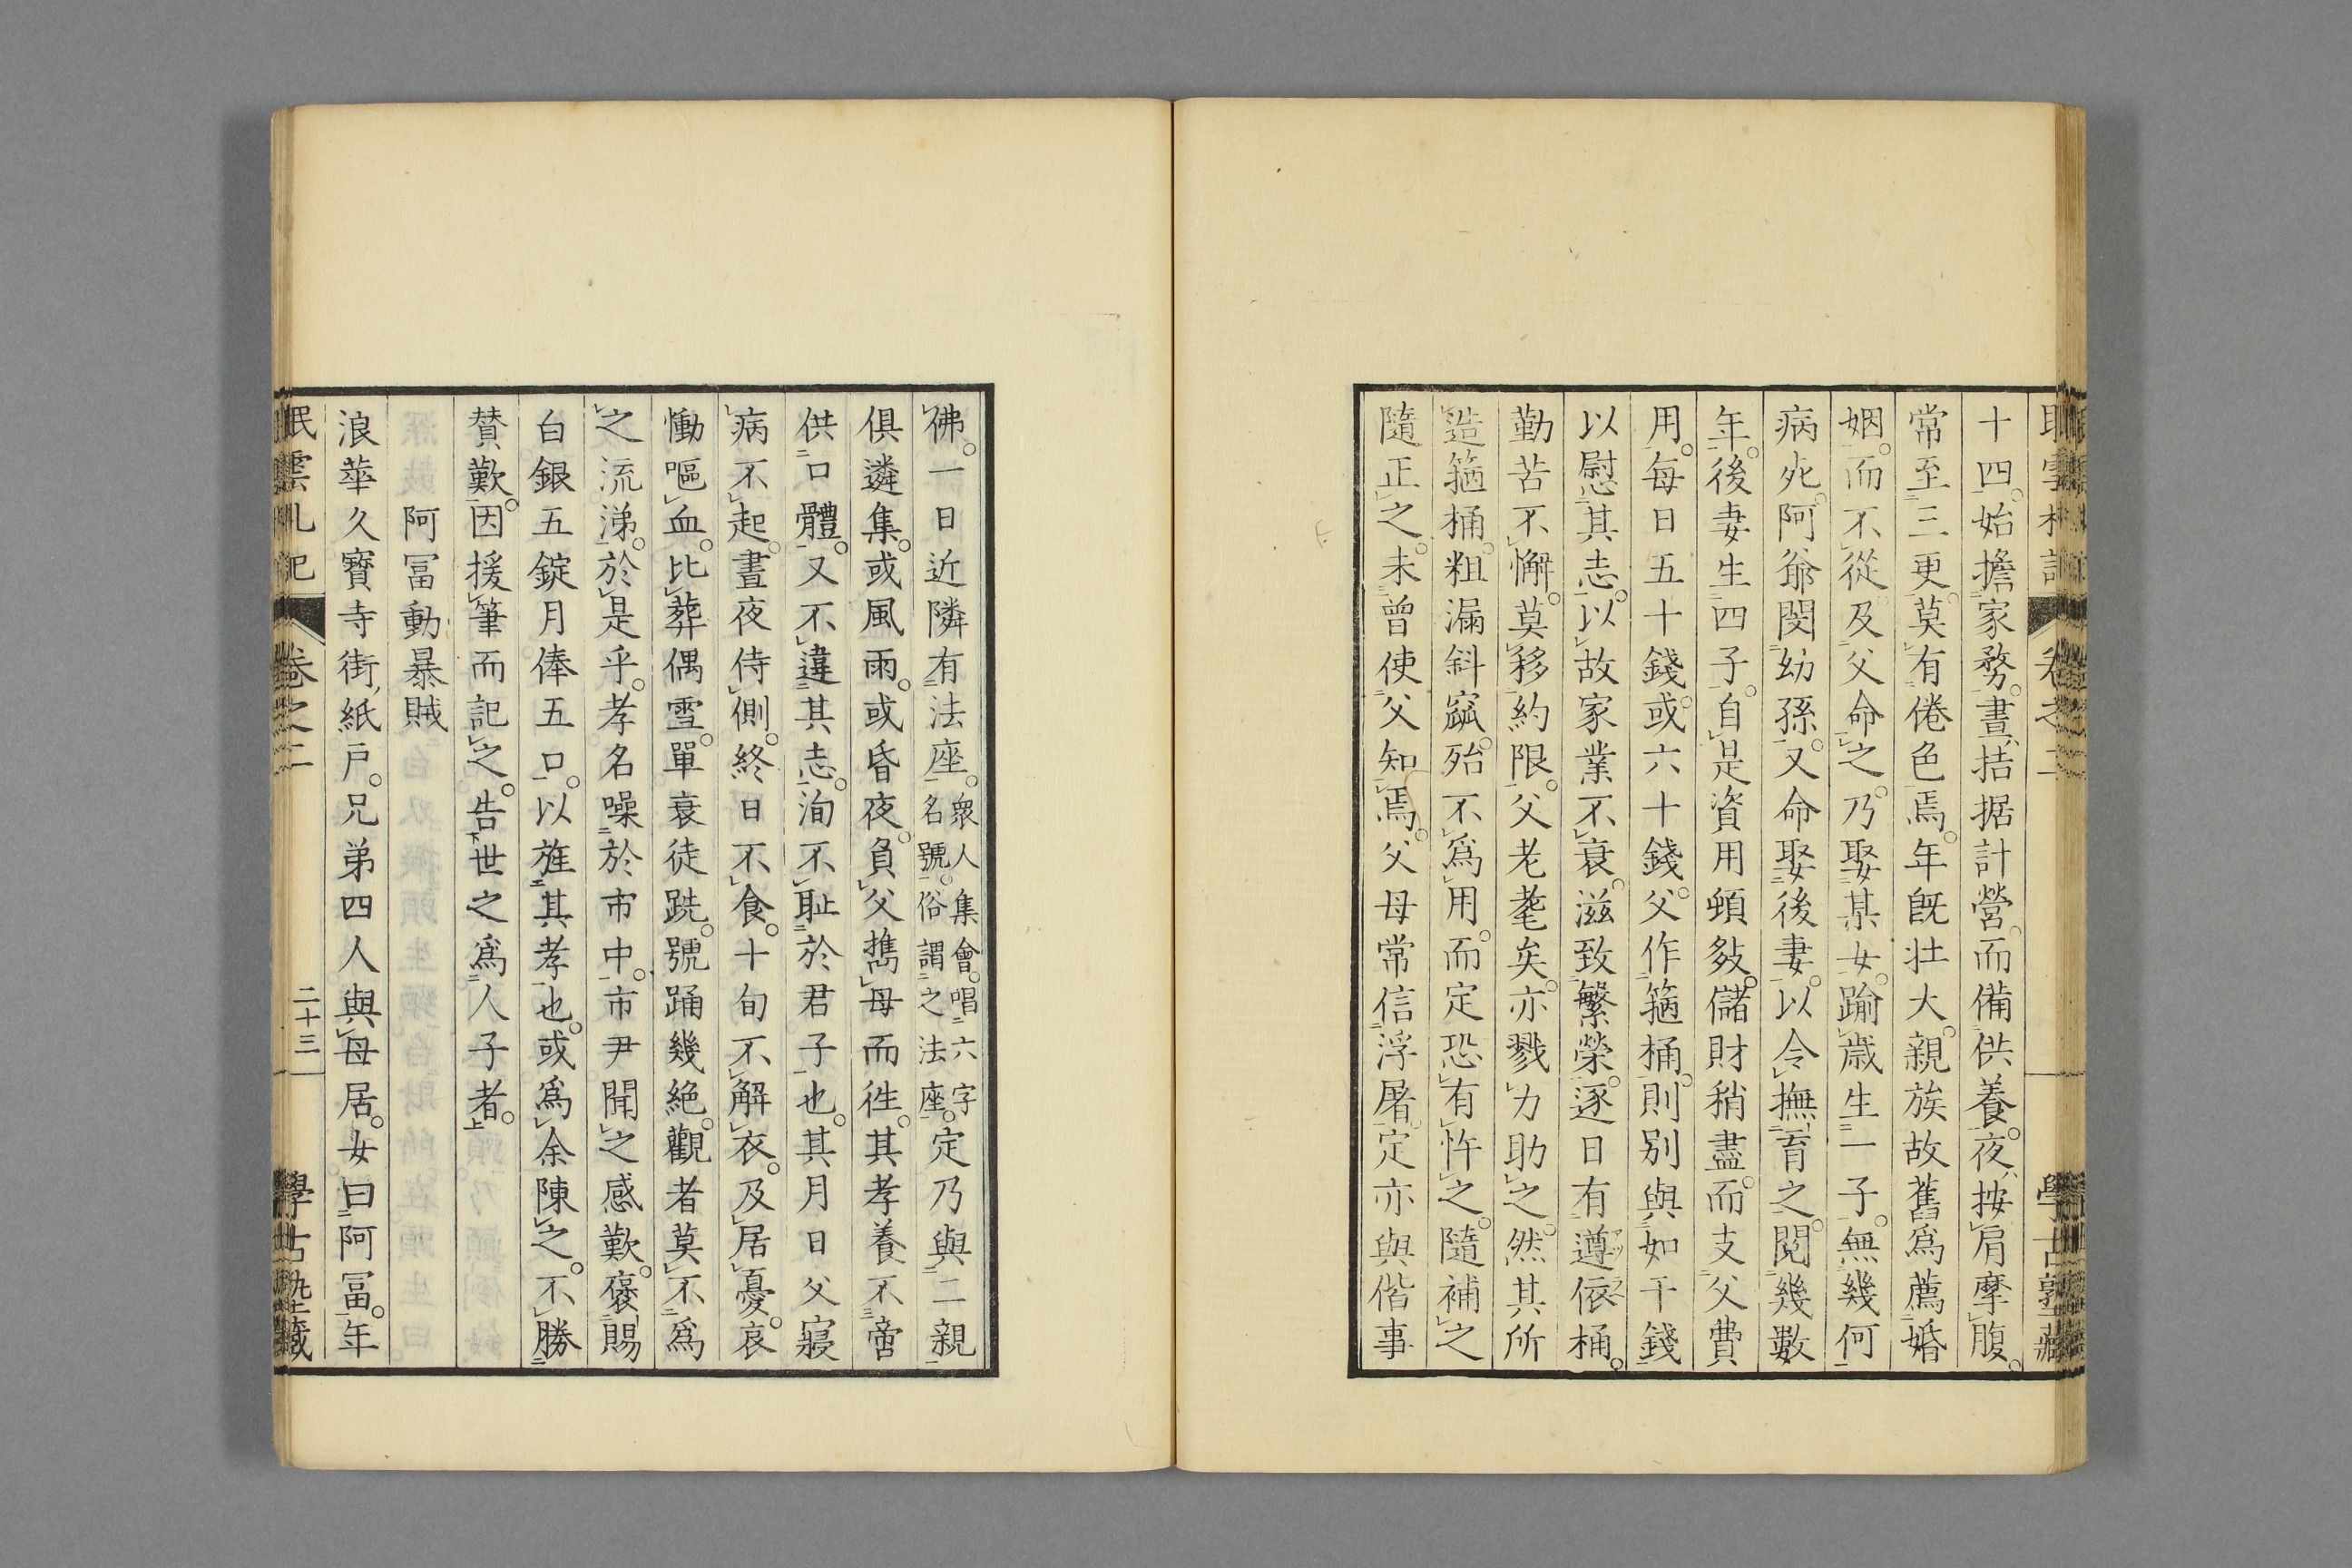 十四。始擔家務。晝拮据計營。而備供養。夜按肩摩腹。
常至三更。莫有倦色焉。年既壮大。親族故舊為薦婚
姻。而不從。及父命之。乃娶某女。踰歳生一子。無幾何
病死。阿爺閔幼孫。又命娶後妻。以令撫育之。閲幾數
年。後妻生四子。自是資用頓敍。儲財稍盡。而支父費
用。每日五十錢。或六十錢。父作箍桶。則别與如干錢
以慰其志。以故家業不衰。滋致繁榮。逐日有遵依桶。
勤苦不懈。莫移約限。父老耄矣。亦戮力助之。然其所
造箍桶。粗漏斜窳。殆不為用。而定恐有忤之。隨補之
隨正之。未曾使父知焉。父母常信浮屠。定亦與偕事
佛。一日近隣有法座。衆人集會。唱六字名號。俗謂之法座。定乃與二親
俱遴集。或風雨。或昏夜。負父携母而徃。其孝養不啻
供口體。又不違其志。洵不耻於君子也。其月日父寢
病不起。晝夜侍側。終日不食。十旬不解衣。及居憂。哀
慟嘔血。比葬偶雪。單衰徒跣。號踊幾絶。觀者莫不為
之流涕。於是乎。孝名噪於市中。市尹聞之感歎。褒賜
白銀五錠月俸五口。以旌其孝也。或為余陳之。不勝
賛歎。因援筆而記之。告世之為人子者。
阿冨動暴賊
浪華久寳寺街紙戸。兄弟四人與母居。女曰阿冨。年
眠雲札記
卷之二
二十三
學古塾藏